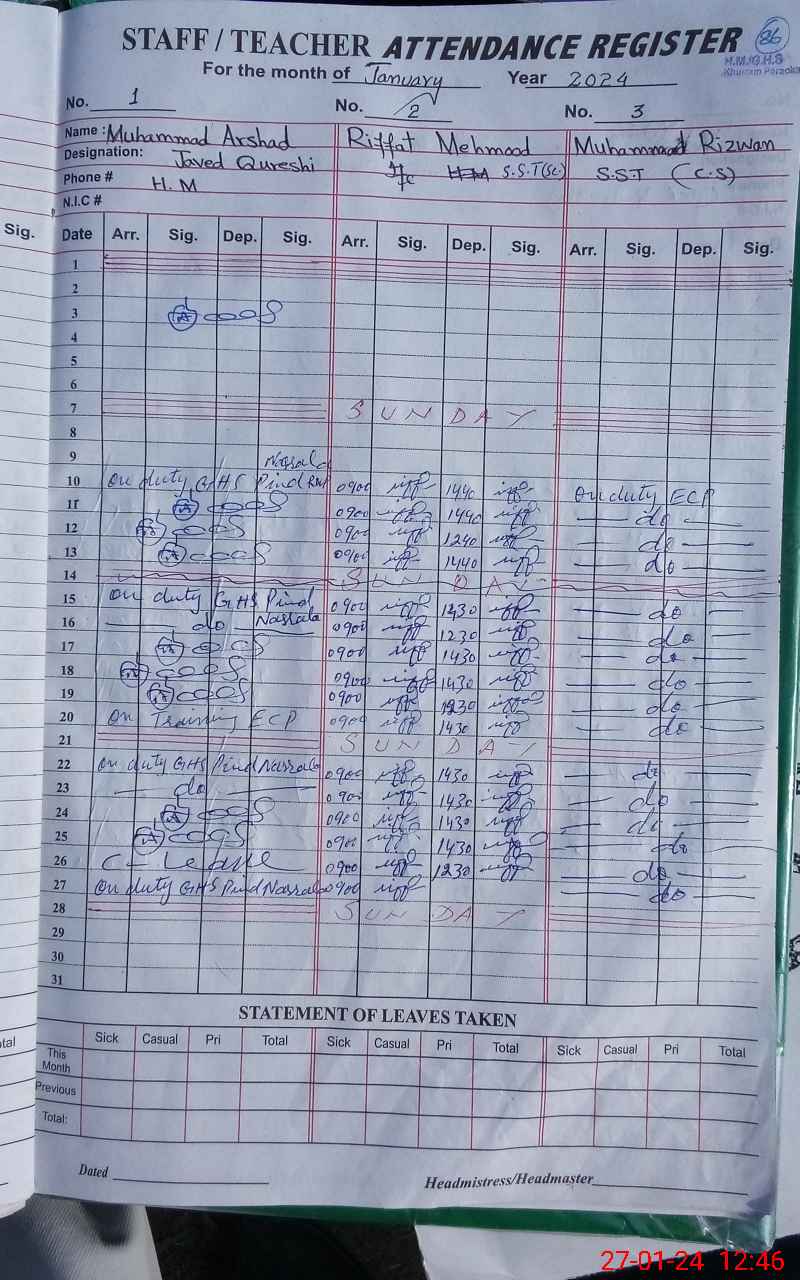 STAFF / TEACHER ATTENDANCE REGISTER
86
H.M.G.H.S
For the month of January Year 2024
No. 1 No. 2 No. 3
Name : Muhammad Arshad Riffat Mehmood Muhammad Rizwan
Designation: Javed Qureshi I/c S.S.T (Sc) S.S.T (C.S)
Phone # H. M
N.I.C #
Sig. Date Arr. Sig. Dep. Sig. Arr. Sig. Dep. Sig. Arr. Sig. Dep. Sig.
1
2
3
4
5
6
7 SUNDAY
8
9
Nasrala
10 On duty GHS Pind 0900 1440 On duty ECP
11 0900 1440 — do —
12 0900 1240 — do —
13 0900 1440 — do —
14 SUNDAY
15 On duty GHS Pind 0900 1430 — do —
16 — do Nassrala 0900 1230 — do —
17 0900 1430 — do —
18 0900 1430 — do —
19 0900 1230 — do —
20 On Training ECP 0900 1430 — do —
21 SUNDAY
22 On duty GHS Pind Nassrala 0900 1430 — do —
23 — do — 0900 1430 — do —
24 0900 1430 — do —
25 0900 1430 — do —
26 C- Leave 0900 1230 — do —
27 On duty GHS Pind Nassrala 0900 — do —
28 SUNDAY
29
30
31
STATEMENT OF LEAVES TAKEN
Sick Casual Pri Total Sick Casual Pri Total Sick Casual Pri Total
This
Month
Previous
Total:
Dated Headmistress/Headmaster
27-01-24 12:46